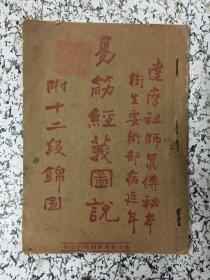 達摩祖師真傳秘本
衛生要術却病延年
易筋經義圖說
附十二段錦圖